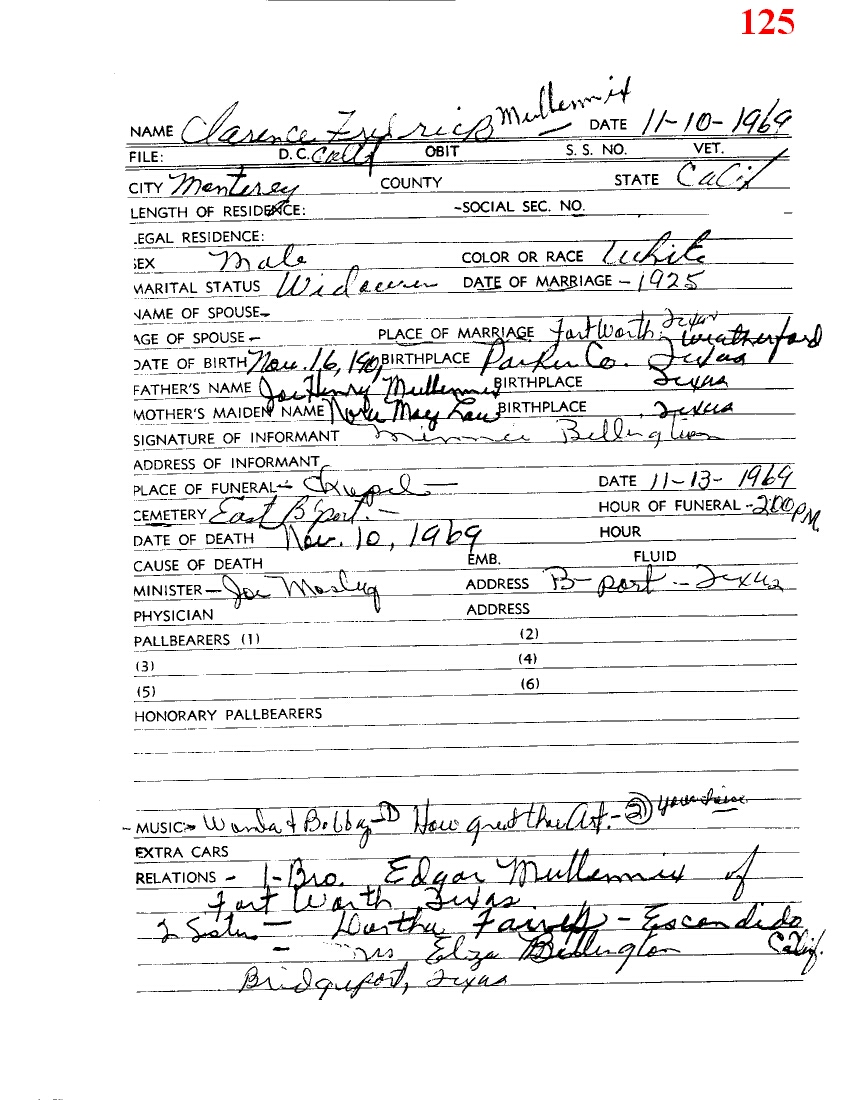 125
NAME Clarence Frederick Mullennix DATE 11-10-1969
FILE: D.C. Calif OBIT S. S. NO. VET.
CITY Monterey COUNTY STATE Calif
LENGTH OF RESIDENCE: -SOCIAL SEC. NO.
LEGAL RESIDENCE:
SEX Male COLOR OR RACE White
MARITAL STATUS Widower DATE OF MARRIAGE - 1925
NAME OF SPOUSE-
AGE OF SPOUSE - PLACE OF MARRIAGE Fort Worth, Texas
DATE OF BIRTH Nov. 16, 190 BIRTHPLACE Parker Co. Weatherford Texas
FATHER'S NAME Joe Henry Mullennix BIRTHPLACE Texas
MOTHER'S MAIDEN NAME Nora May BIRTHPLACE Texas
SIGNATURE OF INFORMANT Minnie Bellington
ADDRESS OF INFORMANT
PLACE OF FUNERAL - Chapel - DATE 11-13-1969
CEMETERY East B'port. - HOUR OF FUNERAL - 2:00 P.M.
DATE OF DEATH Nov. 10, 1969 HOUR
CAUSE OF DEATH EMB. FLUID
MINISTER - Joe Mosley ADDRESS B-port - Texas
PHYSICIAN ADDRESS
PALLBEARERS (1) (2)
(3) (4)
(5) (6)
HONORARY PALLBEARERS
- MUSIC:- Wanda & Bobby - ① How great thou Art. - ② your choice
EXTRA CARS
RELATIONS - 1-Bro. Edgar Mullennix of
Fort Worth Texas
2 Sister - Dortha - Escondido
- Mrs Eliza Bellington Calif.
Bridgeport, Texas